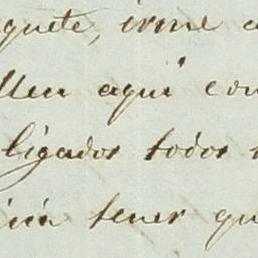 quete, irme a
llen aqui con
ligados todos
sin tener qu